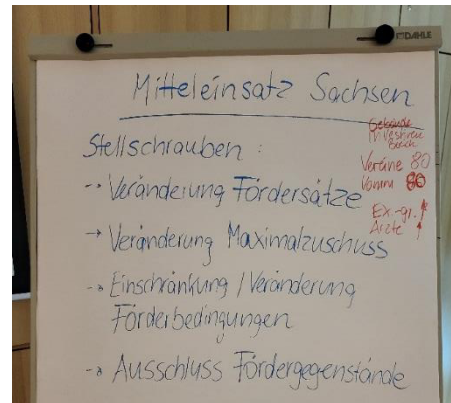 DAHLE
Mitteleinsatz Sachsen
Stellschrauben :
-> Veränderung Fördersätze
-> Veränderung Maximalzuschuss
-> Einschränkung / Veränderung
Förderbedingungen
-> Ausschluss Fördergegenstände
Gebäude
Vereine 80
Komm 80
Ex.-gr. ↑
Ärzte ↑